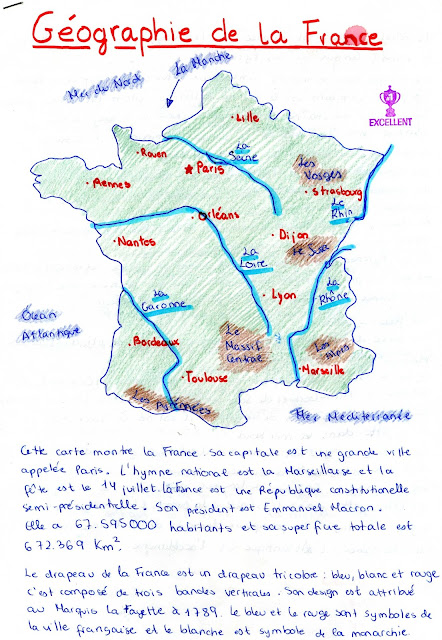 Géographie de la France
La Manche
Mer du Nord
EXCELLENT
Lille
La Seine
Rouen
Paris
Les Vosges
Strasbourg
Rennes
Le Rhin
Orléans
Nantes
Dijon
Le Jura
La Loire
La Garonne
Lyon
La Rhône
Océan
Atlantique
Bordeaux
Le
Massif
Central
Les Alpes
Marseille
Toulouse
Les Pyrénées
Mer Méditerranée
Cette carte montre la France. Sa capitale est une grande ville
appelée Paris. L'hymne national est la Marseillaise et la
fête est le 14 juillet. La France est une République constitutionelle
semi-présidentielle. Son président est Emmanuel Macron.
Elle a 67.595000 habitants et sa superficie totale est
672.369 Km².
Le drapeau de la France est un drapeau tricolore: bleu, blanc et rouge
c'est composé de trois bandes verticales. Son design est attribué
au Marquis La Fayette à 1789. Le bleu et le rouge sont symboles de
la ville française et le blanche est symbole de la monarchie.